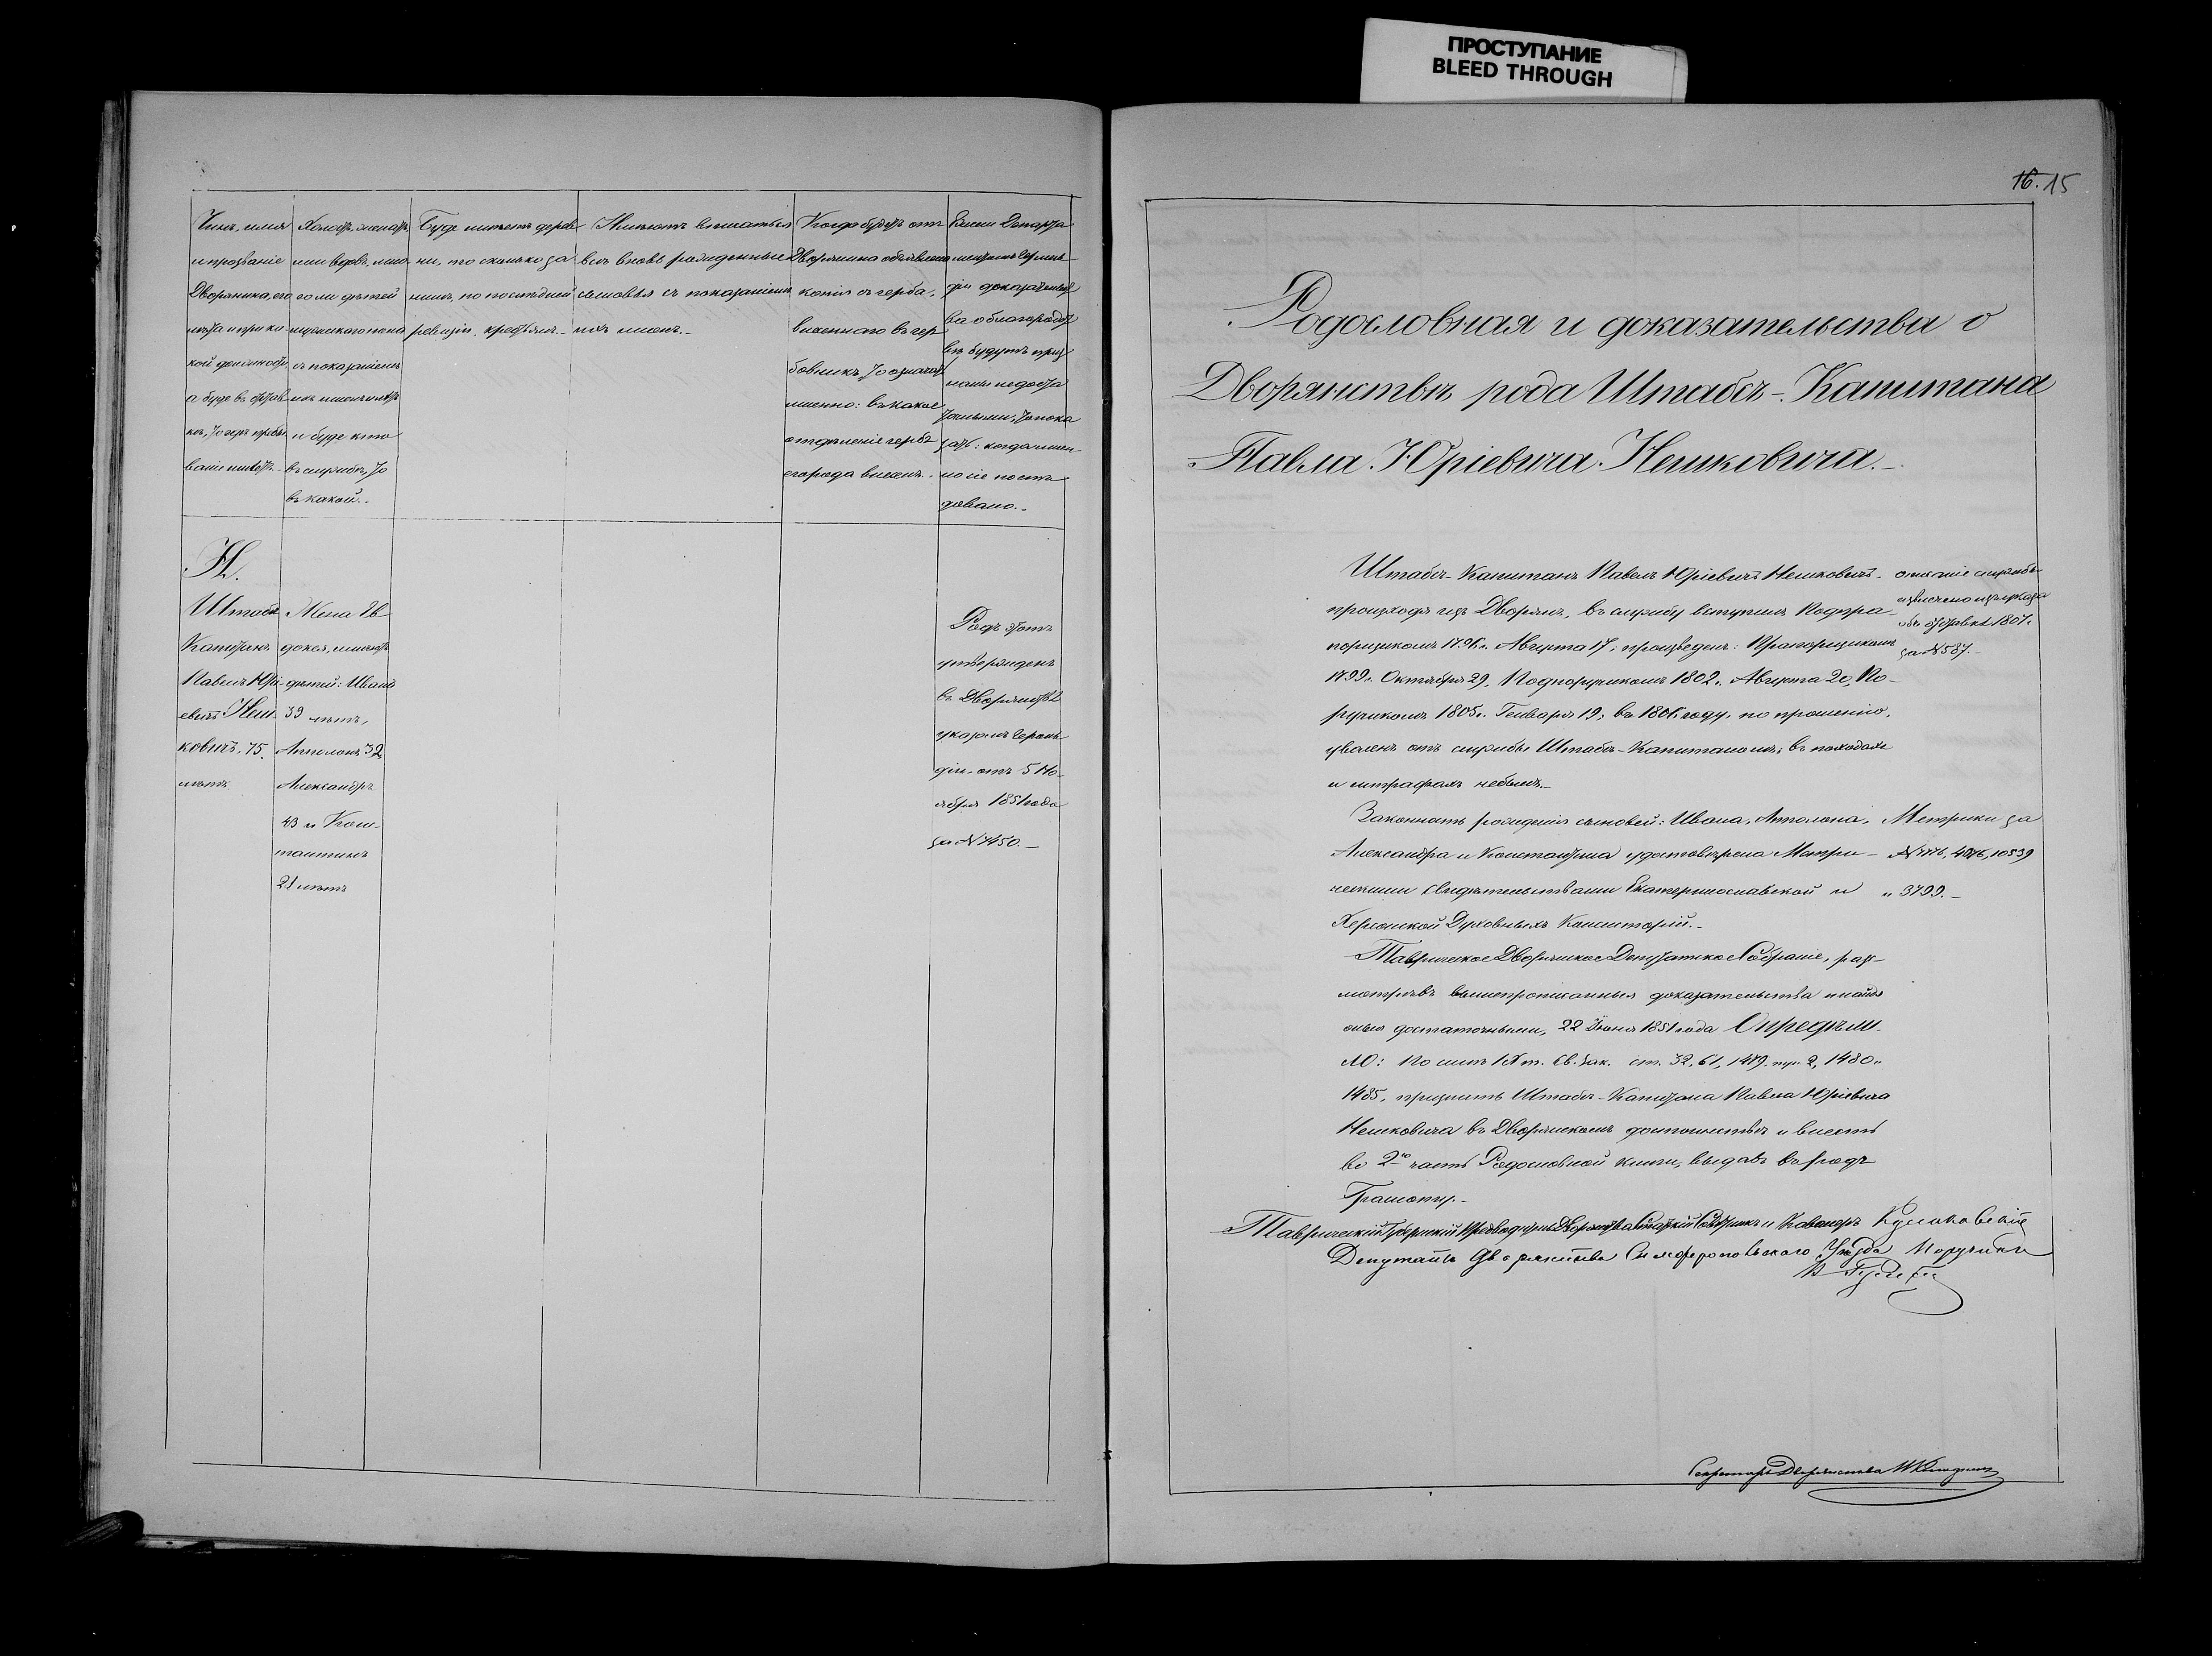 ПРОСТУПАНИЕ
BLEED THROUGH
16. 15
Чинъ, имя
и прозваніе
Дворянина, его
лѣта и при ка-
кой должности,
а буде въ отстав-
кѣ, то гдѣ пребы-
ваніе имѣетъ.
Холостъ, женатъ
или вдовъ, мно-
го ли дѣтей
мужескаго пола
съ показаніемъ
ихъ именъ и лѣтъ
и буде кто
въ службѣ, то
въ какой.-
Буде имѣетъ дерев-
ни, то сколько за
нимъ, по послѣдней
ревизіи, крестьянъ.-
Имѣютъ вписаться
всѣ вновь рожденные
сыновья съ показаніемъ
ихъ именъ.-
Когда будетъ отъ
Дворянина объявлена
копія съ герба,
внесеннаго въ гер-
бовникъ, то означать
именно: въ какое
отдѣленіе гербъ
его рода внесенъ.-
Если Департа-
ментомъ Герольд-
діи доказательст-
ва о благородст-
вѣ будутъ приз-
наны недоста-
точными, то пока-
зать: когда имен-
но сіе послѣ-
довало.-
Н.
Штабсъ
Капитанъ
Павелъ Юрі-
евичъ Неш-
ковичъ, 75.
лѣтъ
Жена Ев-
докія, имѣютъ
дѣтей: Иванъ
39 лѣтъ,
Аполонъ 32,
Александръ
43 и Конс-
тантинъ
21 лѣтъ
Родъ этотъ
утвержденъ
въ Дворянствѣ
указомъ Героль-
діи отъ 5 Но-
ября 1851 года
за № 7450.-
Родословная и доказательства о
Дворянствѣ рода Штабсъ-Капитана
Павла Юріевича Нешковича.-
Штабсъ-Капитанъ Павелъ Юріевичъ Нешковичъ-
происходя изъ Дворянъ, въ службу вступилъ Подпра-
порщикомъ 1796 г. Августа 17; произведенъ: Прапорщикомъ
1799 г. Октября 29, Подпоручикомъ 1802 г. Августа 20, По-
ручикомъ 1805 г. Генваря 19; въ 1806 году, по прошенію,
уволенъ отъ службы Штабсъ-Капитаномъ; въ походахъ
и штрафахъ небылъ.-
о его службѣ
извлечено изъ указа
объ отставкѣ 1807 г.
за № 587.-
Законность рожденія сыновей: Ивана, Аполона,
Александра и Константина удостовѣрена Метри-
ческими Свидѣтельствами Екатеринославской и
Херсонской Духовныхъ Консисторій.-
Метрики за
10539
и 3799.-
Таврическое Дворянское Депутатское Собраніе, раз-
смотрѣвъ вышепрописанныя доказательства и найдя
оныя достаточными, 22 Іюня 1851 года Опредѣли-
ло: По силѣ IX т. Св. Зак. ст. 32, 61, 1479. пун. 2, 1480 и
1485, признать Штабсъ-Капитана Павла Юріевича
Нешковича въ Дворянскомъ достоинствѣ и внесть
во 2ю часть Родословной книги, выдавъ въ родъ
Грамоту.-
Таврическій Губернскій Предводитель Дворянства Статскій Совѣтникъ и Кавалеръ
Депутатъ Дворянства Симферопольского Уѣзда Поручикъ
Секретарь Дворянства